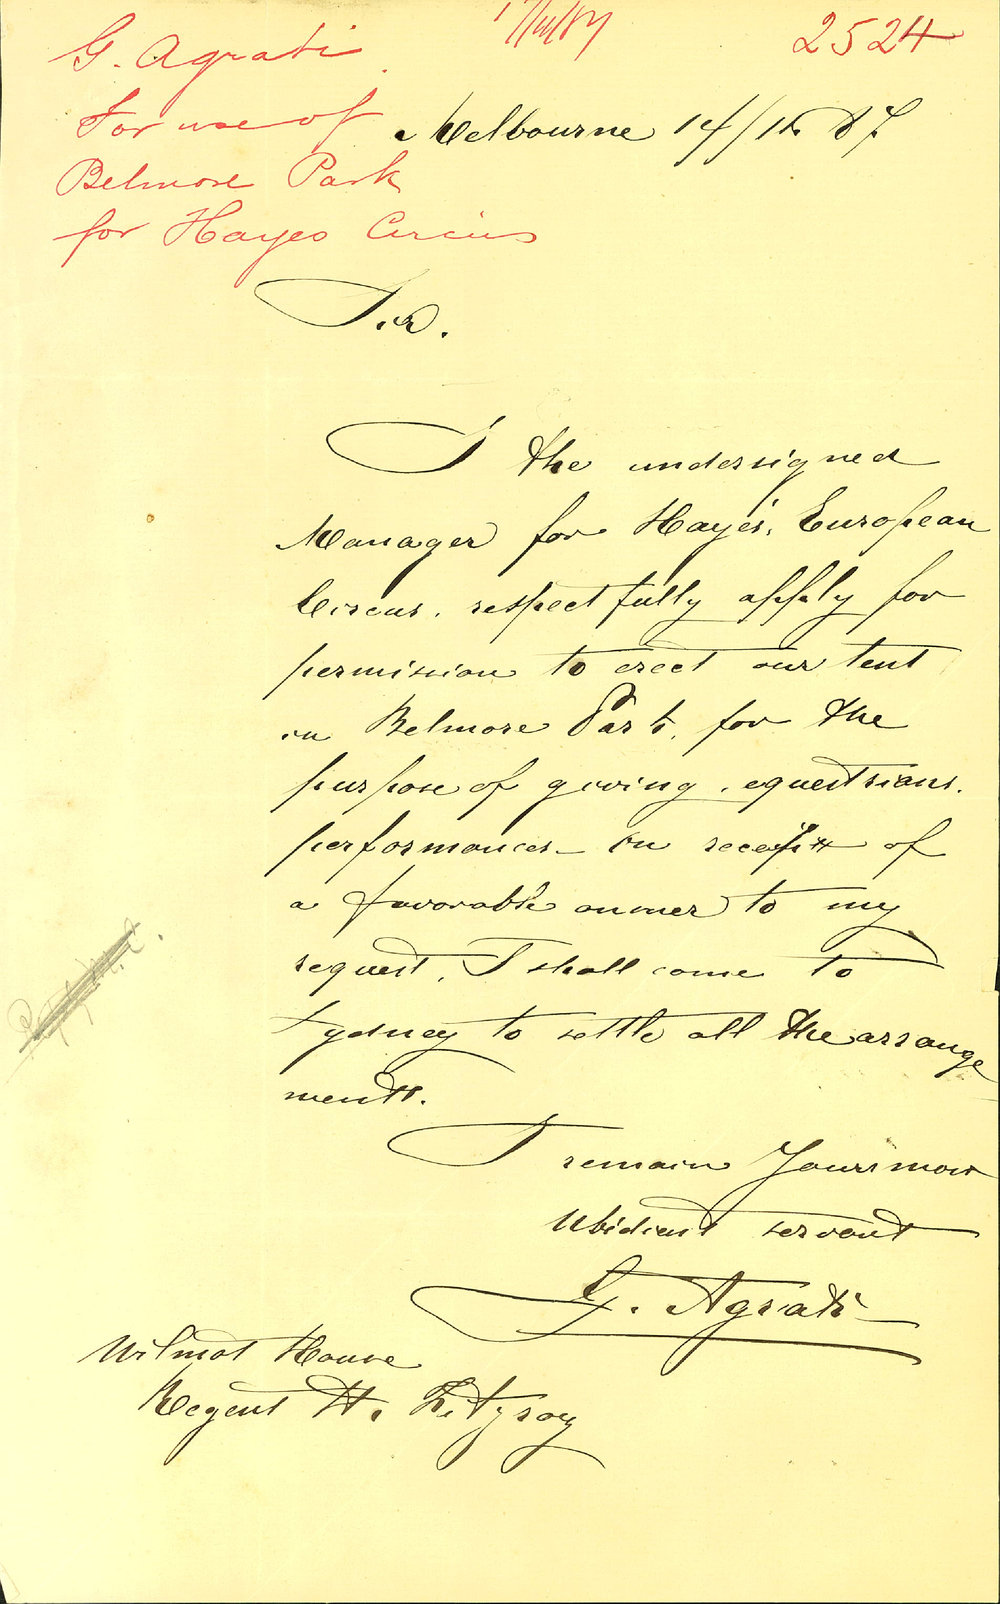 17/11/87
2524
G. Agrati
For use of
Belmore Park
for Hayes Circus
Melbourne 14/11 87.
Sir.
I the undersigned
Manager for Hayes, European
Circus. respectfully apply for
permission to erect our tent
in Belmore Park, for the
purpose of giving, equestrians.
performances - on receipt of
a favorable answer to my
request, I shall come to
Sydney to settle all the arrange
ments.
I remain Yours most
Obidient servant
G. Agrati
Wilmot House
Regent St. Fitzroy